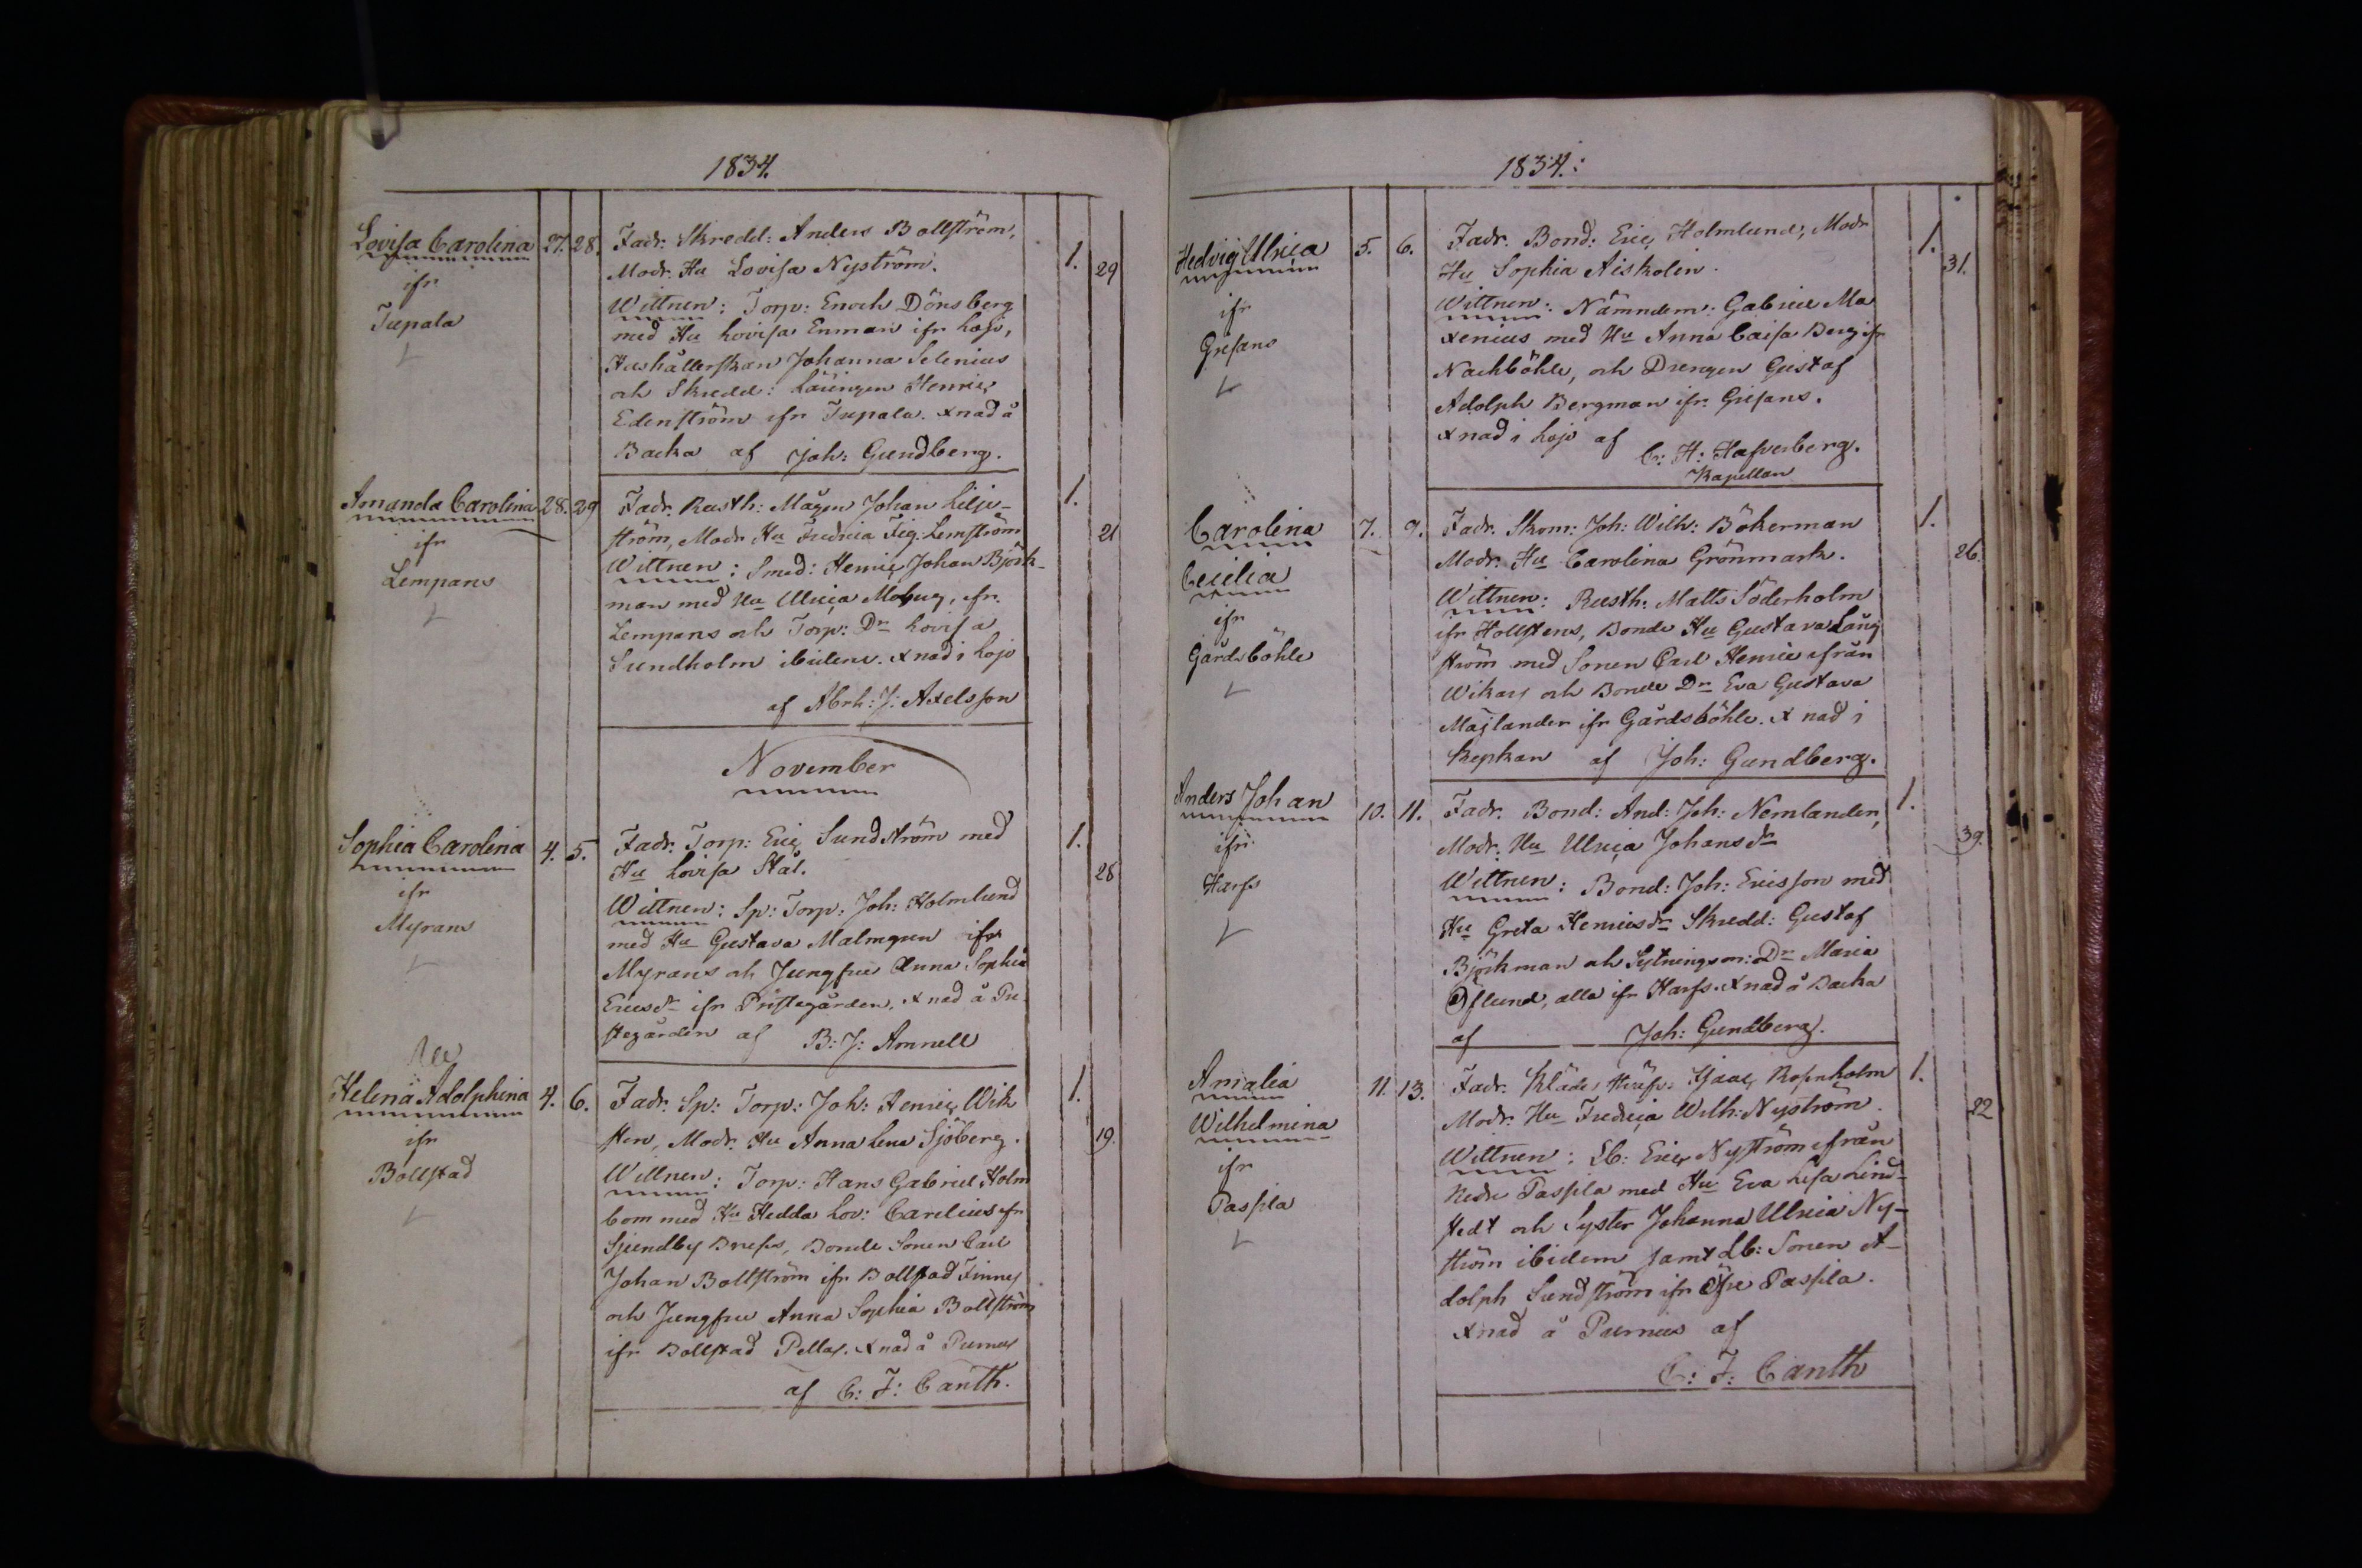 1834.
Lovisa Carolina 27. 28. Fadr. Skredd: Anders Bollström, 1. 29
Modr. Hu Lovisa Nyström.
ifr
Wittnen: Torp: Enoch Dönsberg
Tupala
med Hu Lovisa Enman ifr Lojo,
Hushållerskan Johanna Selenius
och Skredd: Läringen Henric
Edenström ifr Tupala. Xnad å
Backa af Joh: Gundberg.
Amanda Carolina 28. 29 Fadr. Rusth: Mågen Johan Lilje- 1. 21
ström, Modr. Hu Fredrica Lemström
ifr
Wittnen: Smed: Henric Johan Björk-
Lempans
man med Hu Ulrica Moberg, ifr.
Lempans och Torp: Dr Lovisa
Sundholm ibidem. Xnad i Lojo
af Abrh: J: Axelsson
November
Sophia Carolina 4. 5. Fadr. Torp: Eric Sundström med 1. 28
Hu Lovisa Stål.
ifr
Wittnen: Sp: Torp: Joh: Holmlund
Myrans
med Hu Gustava Malmgren ifr
Myrans och Jungfru Anna Sophia
Ericsdr ifr Prestegården. Xnad å Pre-
stegården af B: J: Amnell
Helena Adolphina 4. 6. Fadr. Sp: Torp: Joh: Henric Wik 1. 19.
sten, Modr. Hu Anna Lena Sjöberg.
ifr
Wittnen: Torp: Hans Gabriel Holm
Bollstad
bom med Hu Hedda Lov: Carelius ifr
Sjundby Bruks, Bonde Sonen Carl
Johan Bollström ifr Bollstad Finnes
och Jungfru Anna Sophia Bollström
ifr Bollstad Pellas. Xnad å Purnus
af C: F: Canth.
1834.:
Hedvig Ulrica 5. 6. Fadr. Bond: Eric Holmlund, Modr 1. 31.
Hu Sophia Aiskolin.
ifr
Wittnen: Nämndem: Gabriel Ma
Grefans
xenius med Hu Anna Caisa Berg ifr
Nackböhle, och Drengen Gustaf
Adolph Bergman ifr. Grefans.
Xnad i Lojo af C: H: Hasverberg.
Kapellan
Carolina 7. 9. Fadr. Skom: Joh: Wilh: Bökerman 1. 26.
Modr. Hu Carolina Grönmark.
Cecilia
Wittnen: Rusth: Matts Söderholm
ifr
ifr Hollstens, Bonde Hu Gustava Lång
Gårdsböhle
ström med Sonen Carl Henric ifrån
Wikars och Bonde Dr Eva Gustava
Majlander ifr Gårdsböhle. Xnad i
Kyrkan af Joh: Gundberg.
Anders Johan 10. 11. Fadr. Bond: And: Joh: Nemlander, 1. 39.
ifr
Modr. Hu Ulrica Johansdr
Harfs
Wittnen: Bond: Joh: Ericsson med
Hu Greta Henricsdr Skredd: Gustaf
Björkman och Sytningsm: Dr Maria
Öflund, alla ifr Harfs. Xnad å Backa
af Joh: Gundberg.
Amalia 11. 13. Fadr. Klädes Isaac Rosenholm 1. 22
Modr. Hu Fredrica Wilh: Nyström.
Wilhelmina
Wittnen: Lb: Eric Nyström ifrån
ifr
Nedre Paspla med Hu Eva Lisa Lind-
Paspla
stedt och Syster Johanna Ulrica Ny-
ström ibidem samt Lb: Sonen A-
dolph Sundström ifr Öfre Paspla.
Xnad å Purnus af
C: F: Canth